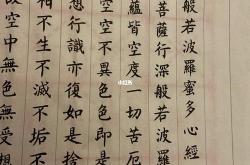 般若波羅蜜多心經
菩薩行深般若波羅
蘊皆空度一切苦厄
空空不異色色即是
想行識亦復如是捨
相不生不滅不垢不
故空中無色無受想
小红书